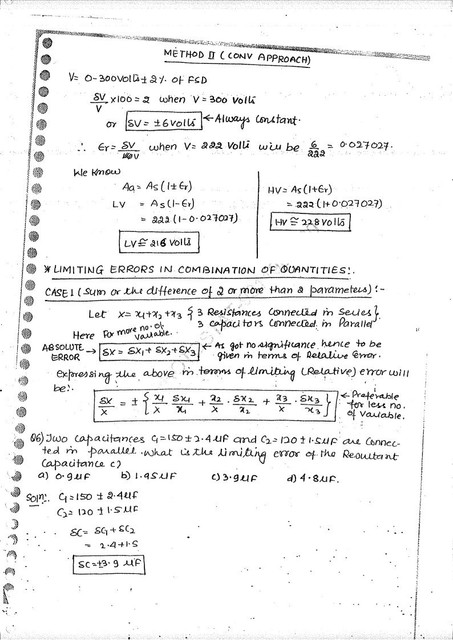 METHOD II (CONV APPROACH)
V= 0-300Volts ± 2% of FSD
δV/V ×100 = 2 when V = 300 Volts
or δV = ±6 Volts ← Always Constant.
∴ Er = δV/V when V = 222 Volts will be 6/222 = 0.027027.
We Know
Aa = As(1±Er)
LV = As(1-Er)
= 222(1-0.027027)
LV ≅ 216 Volts
HV = As(1+Er)
= 222(1+0.027027)
HV ≅ 228 Volts
* LIMITING ERRORS IN COMBINATION OF QUANTITIES:.
CASE 1 (Sum or the difference of 2 or more than 2 parameters):-
Let X = x1+x2+x3 { 3 Resistances Connected in Series }
3 Capacitors Connected in Parallel
Here For more no. of variable.
ABSOLUTE ERROR → δX = δX1 + δX2 + δX3 ← As got no significance, hence to be
given in terms of Relative Error.
Expressing the above in terms of limiting (Relative) error will
be:.
δX/X = ± { x1/X δX1/x1 + x2/X . δX2/x2 + x3/X . δX3/x3 } ← Preferable
for less no.
of Variable.
Q6) Two Capacitances C1=150±2.4μF and C2=120±1.5μF are Connec-
ted in parallel. what is the limiting error of the Resultant
Capacitance C)
a) 0.9μF b) 1.95μF c) 3.9μF d) 4.8μF.
Soln:. C1=150 ± 2.4μF
C2= 120 ± 1.5μF
δC = δC1+δC2
= 2.4+1.5
δC=±3.9 μF